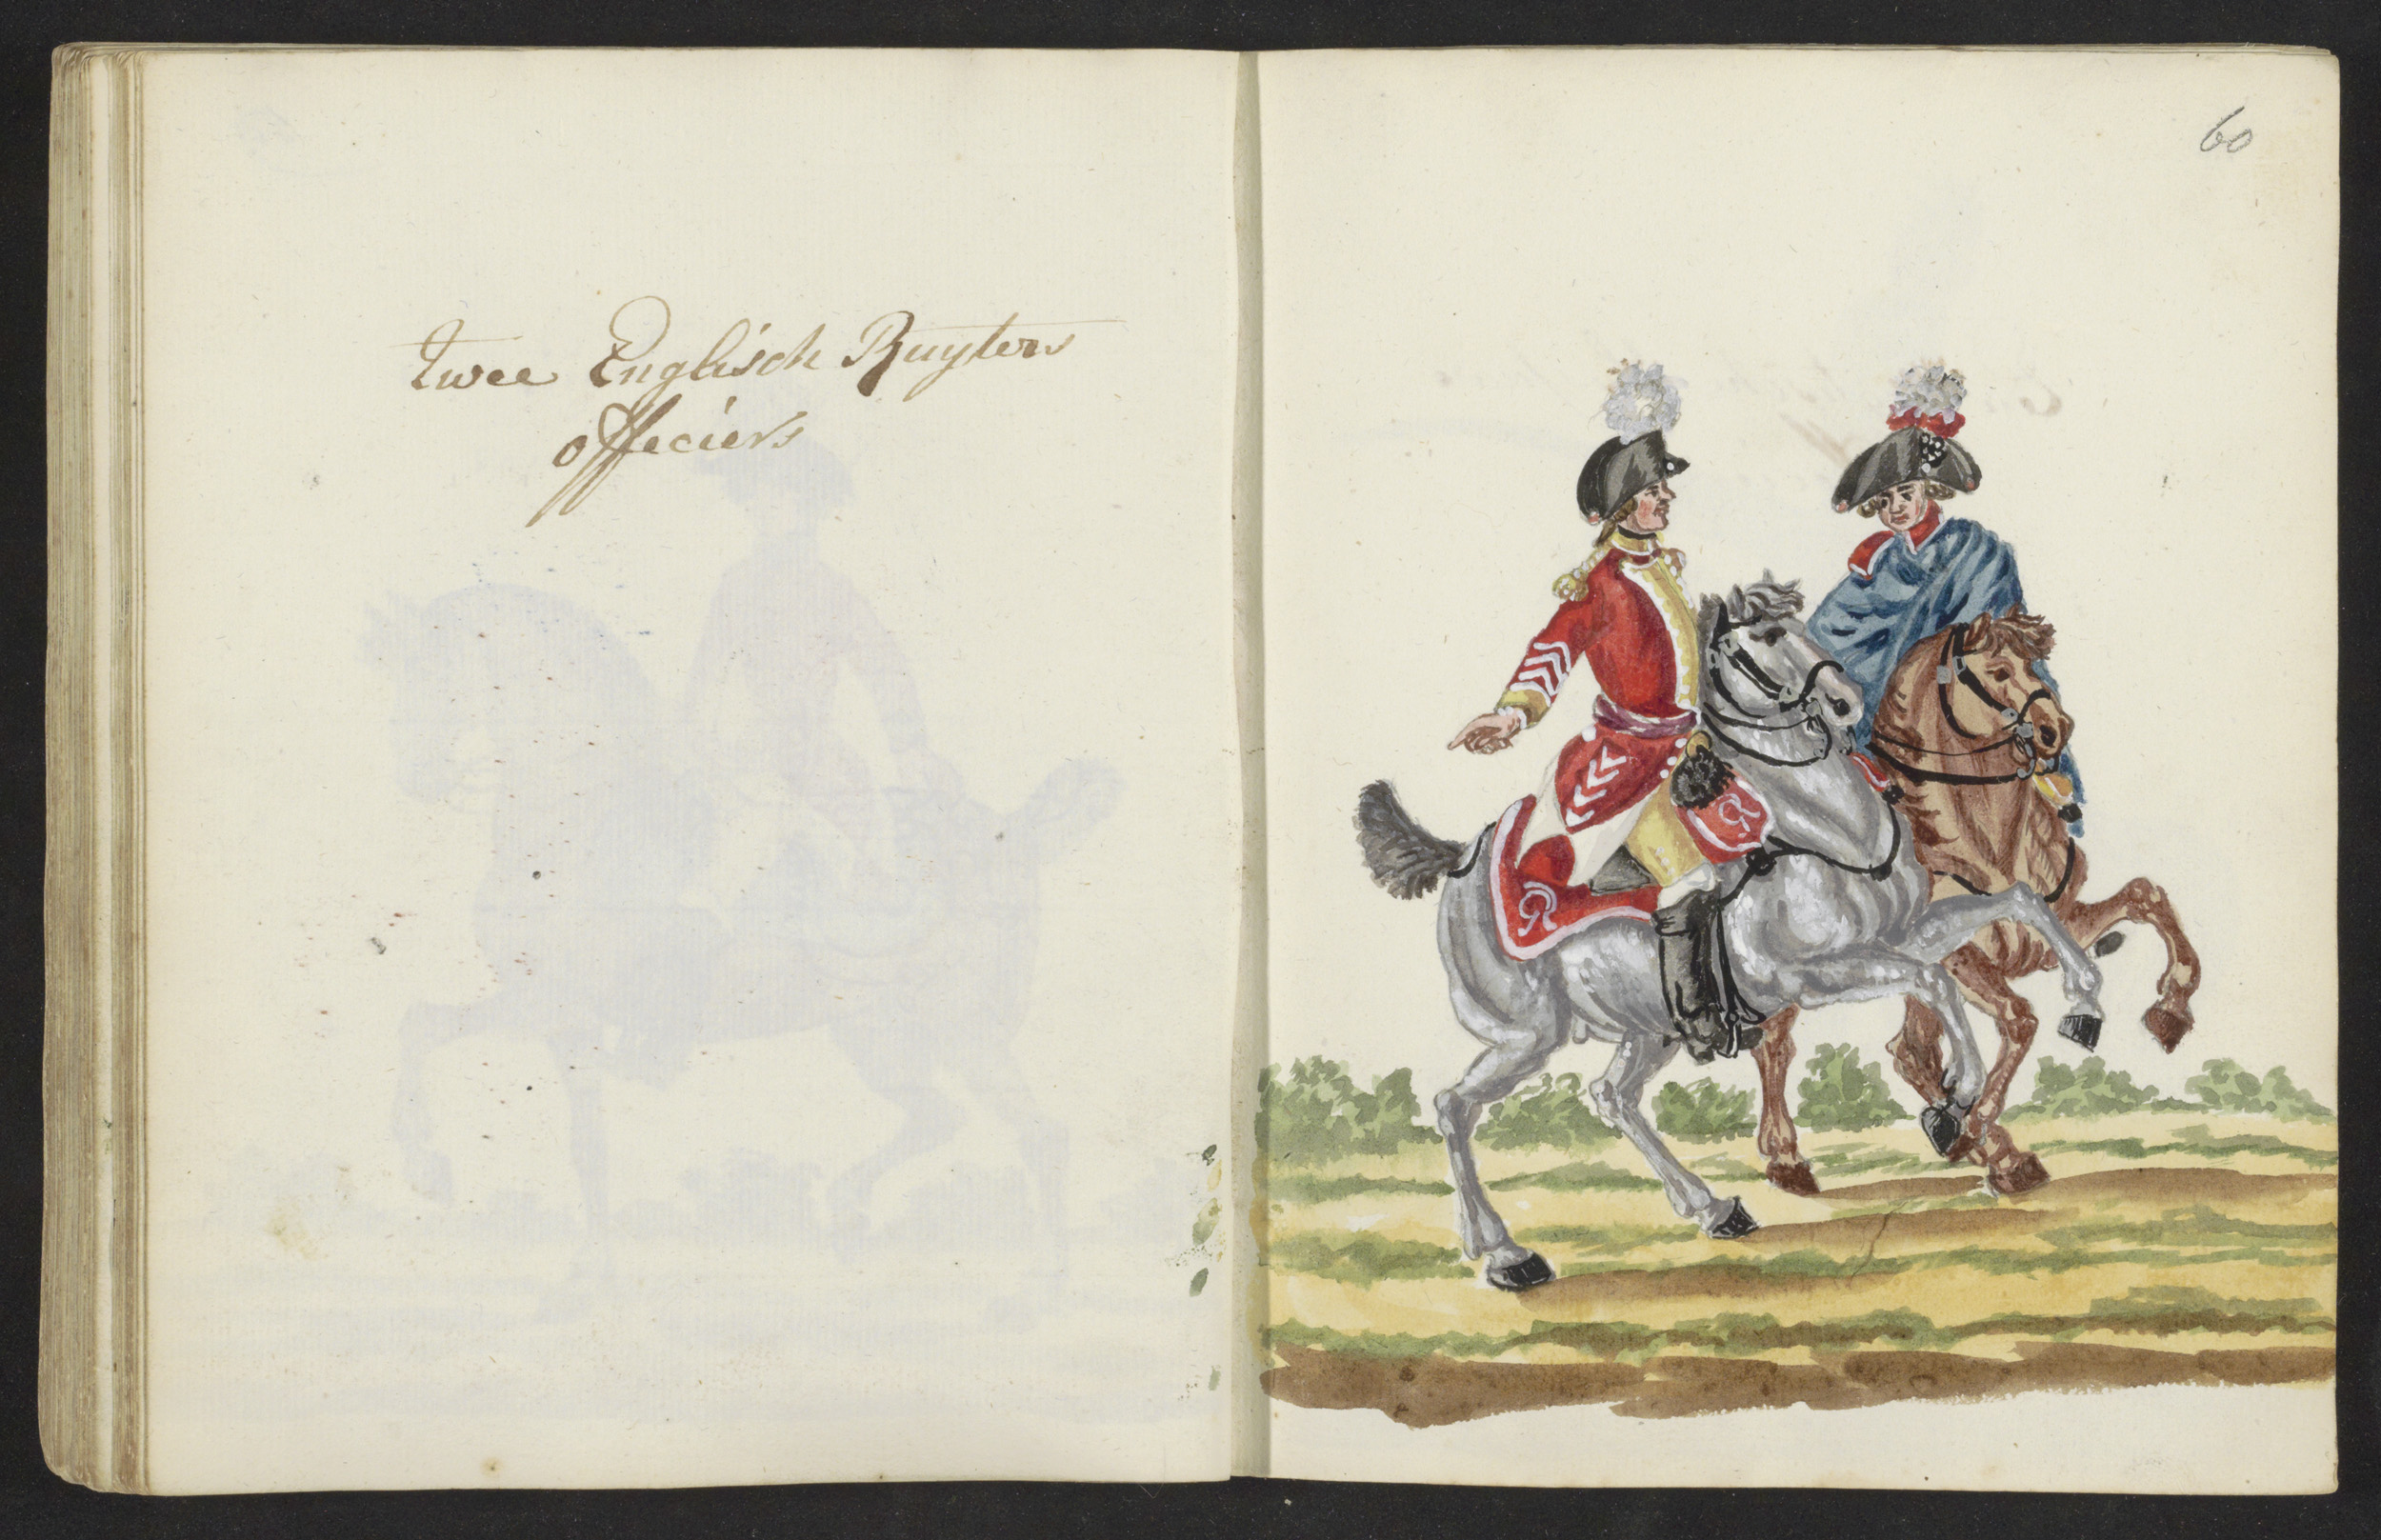 twee Englisch Ruyters
officiers
60
GR
GR